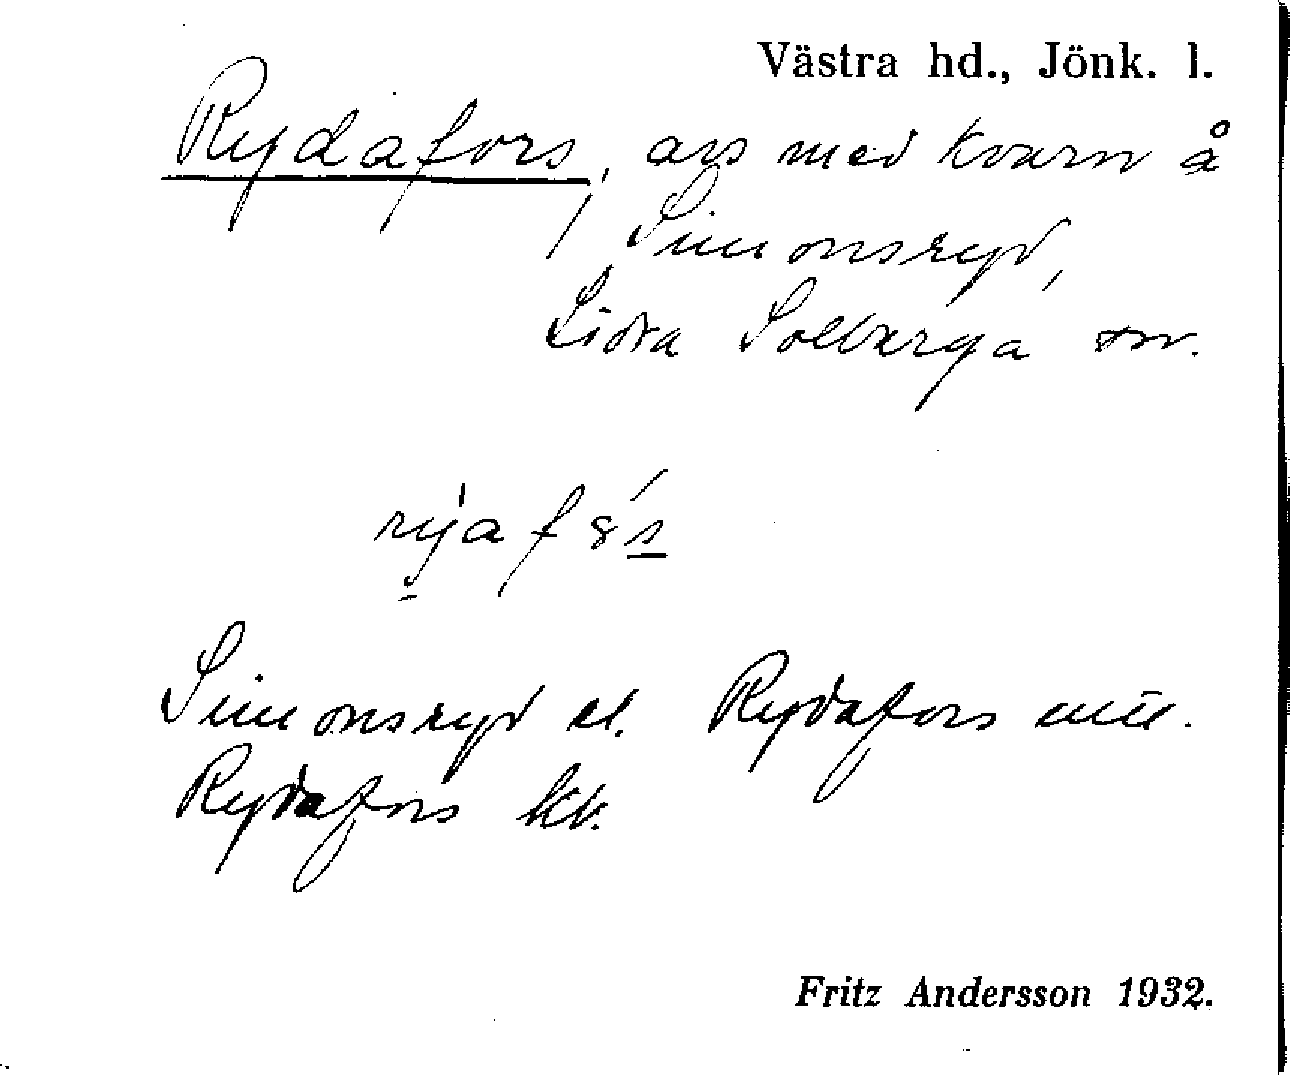 Västra hd., Jönk. l.
Rydafors, avs med kvarn å
Simonsryd,
Södra Solberga sn.
Simonsryd el. Rydafors
Rydafors kv.
Fritz Andersson 1932.